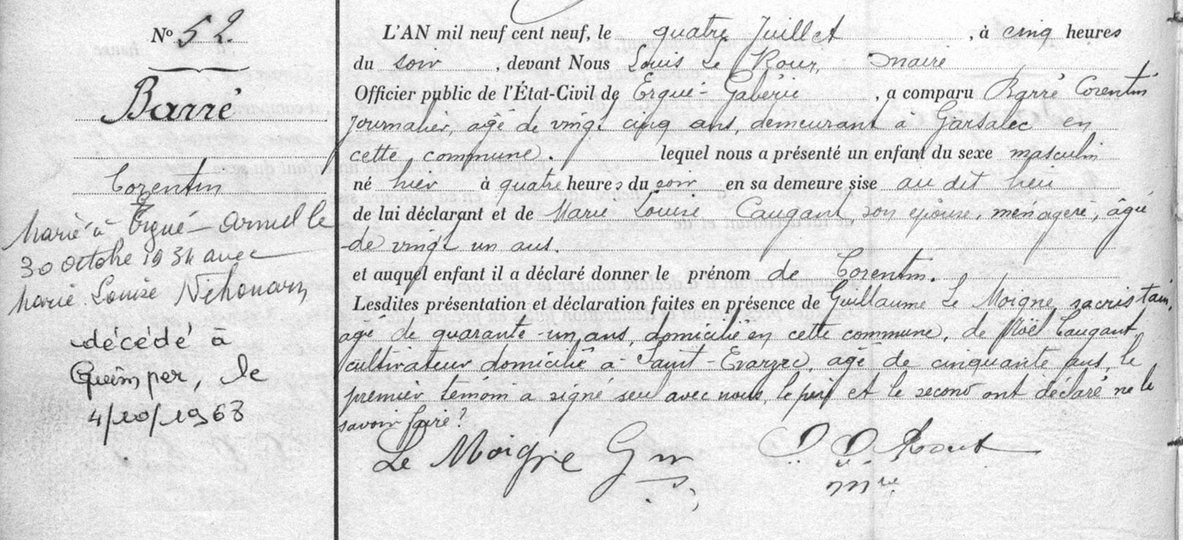 N° 52
Barré
Corentin
Marié à Ergué-Armel le
30 octobre 1934 avec
Marie Louise Néhouarn
décédé à
Quimper, le
4/10/1963
L'AN mil neuf cent neuf, le quatre Juillet, à cinq heures
du soir, devant Nous Louis Le Roux, maire
Officier public de l'État-Civil de Ergué-Gabéric, a comparu Barré Corentin
journalier, agé de vingt cinq ans, demeurant à Garsalec en
cette commune. lequel nous a présenté un enfant du sexe masculin
né hier à quatre heures du soir en sa demeure sise au dit lieu
de lui déclarant et de Marie Louise Caugant, son épouse, ménagère, âgée
de vingt un ans.
et auquel enfant il a déclaré donner le prénom de Corentin.
Lesdites présentation et déclaration faites en présence de Guillaume Le Moigne, sacristain,
agé de quarante-un ans, domicilié en cette commune, de Noël Caugant,
cultivateur domicilié à Saint-Evarzec, agé de cinquante ans, le
premier témoin a signé seul avec nous, le père et le second ont déclaré ne le
savoir faire.
Le Moigne G